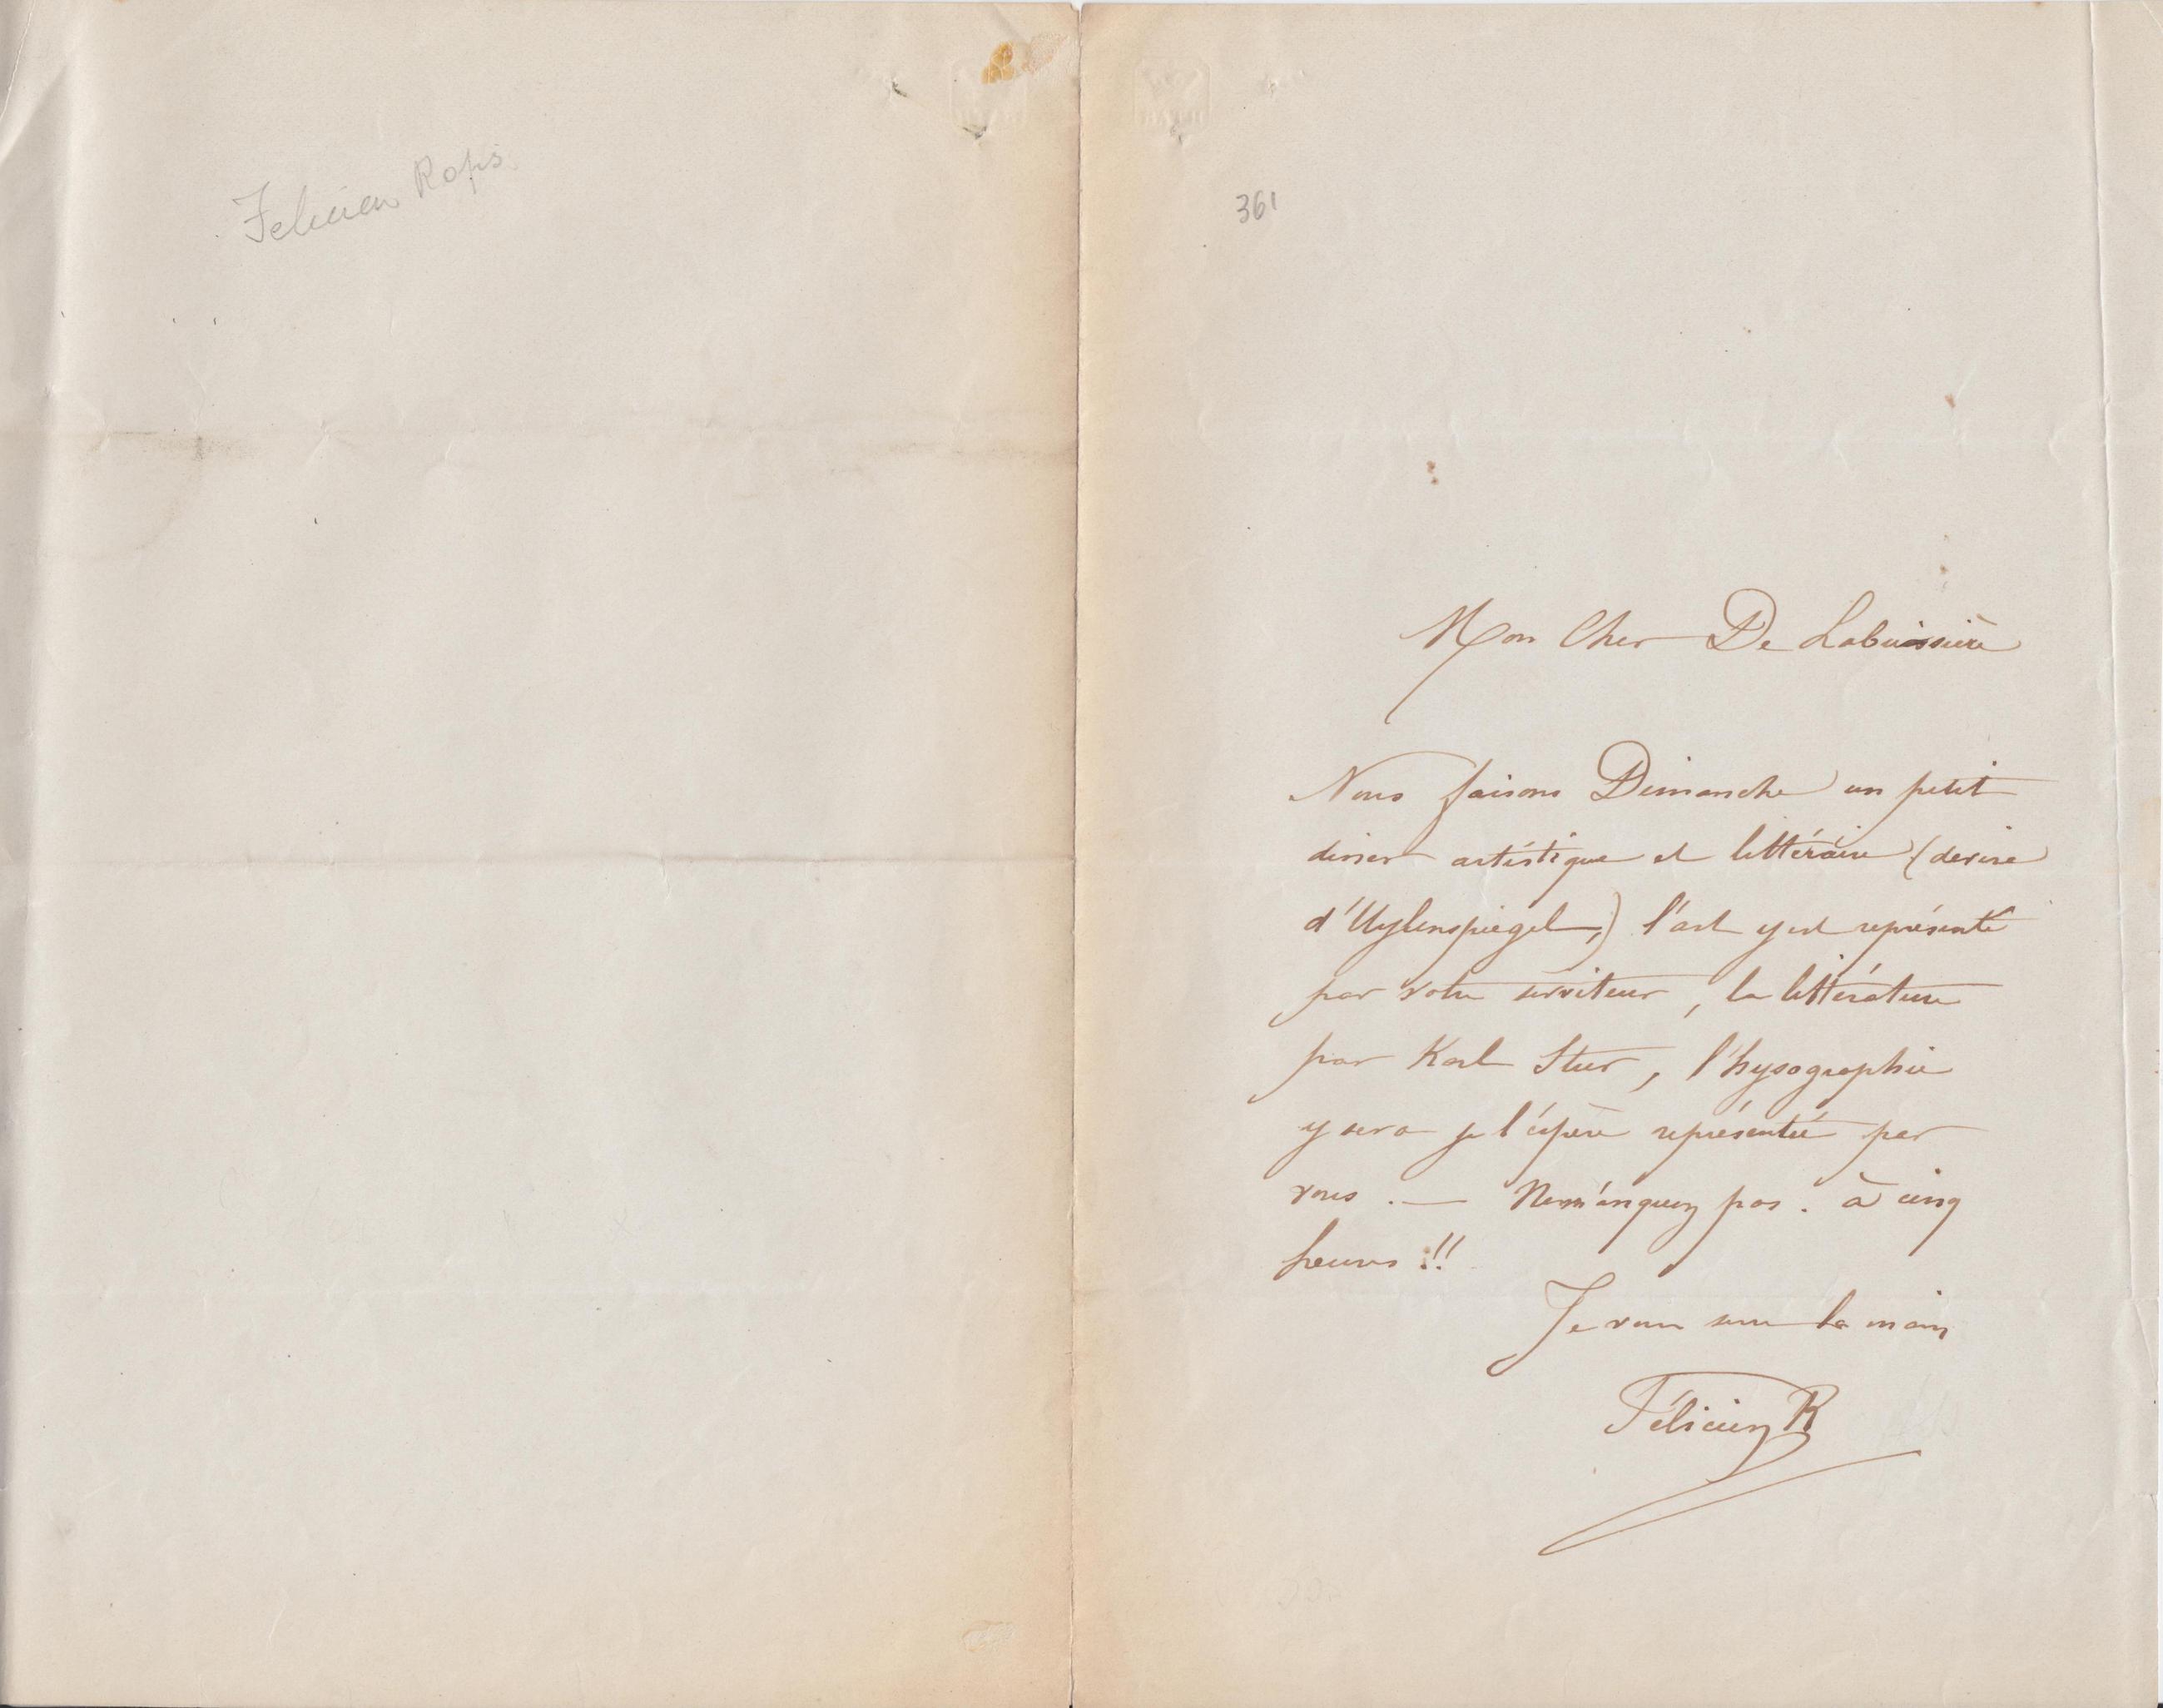 Felicien Rops
361
Mon Cher De Labuissière
Nous faisons Dimanche un petit
diner artistique et littéraire (devise
d'Uylenspiegel,) l'art y est représenté
par votre serviteur, la littérature
par Karl Stur, l'hysographie
y sera je l'éspère représentée par
vous. — Ne manquez pas. à cinq
heures !!!
Je vous serre la main
Félicien R